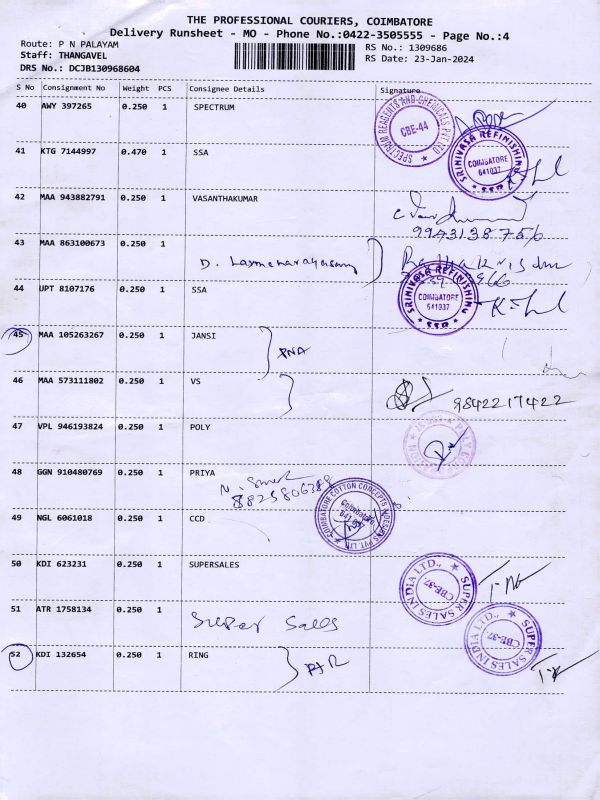 THE PROFESSIONAL COURIERS, COIMBATORE
Delivery Runsheet - MO - Phone No.:0422-3505555 - Page No.:4
Route: P N PALAYAM RS No.: 1309686
Staff: THANGAVEL RS Date: 23-Jan-2024
DRS No.: DCJB130968604
S No Consignment No Weight PCS Consignee Details Signature
40 AWY 397265 0.250 1 SPECTRUM
SPECTRUM REAGENTS AND CHEMICALS PVT LTD
CBE-44
41 KTG 7144997 0.470 1 SSA
SRINIVASA REFINISHING
COIMBATORE
641037
SSD
42 MAA 943882791 0.250 1 VASANTHAKUMAR
9943138756
43 MAA 863100673 0.250 1
D. Laxmenarayasamy
44 UPT 8107176 0.250 1 SSA
SRINIVASA REFINISHING
COIMBATORE
641037
SSD
45 MAA 105263267 0.250 1 JANSI
PNA
46 MAA 573111802 0.250 1 VS
9842217422
47 VPL 946193824 0.250 1 POLY
48 GGN 910480769 0.250 1 PRIYA
8825806388
49 NGL 6061018 0.250 1 CCD
COIMBATORE COTTON CONCEPTS N DESIGNS PVT. LTD.
Coimbatore
50 KDI 623231 0.250 1 SUPERSALES
SUPER SALES INDIA LTD.,
CBE-37
51 ATR 1758134 0.250 1
Super Sales
SUPER SALES INDIA LTD.,
CBE-37
52 KDI 132654 0.250 1 RING